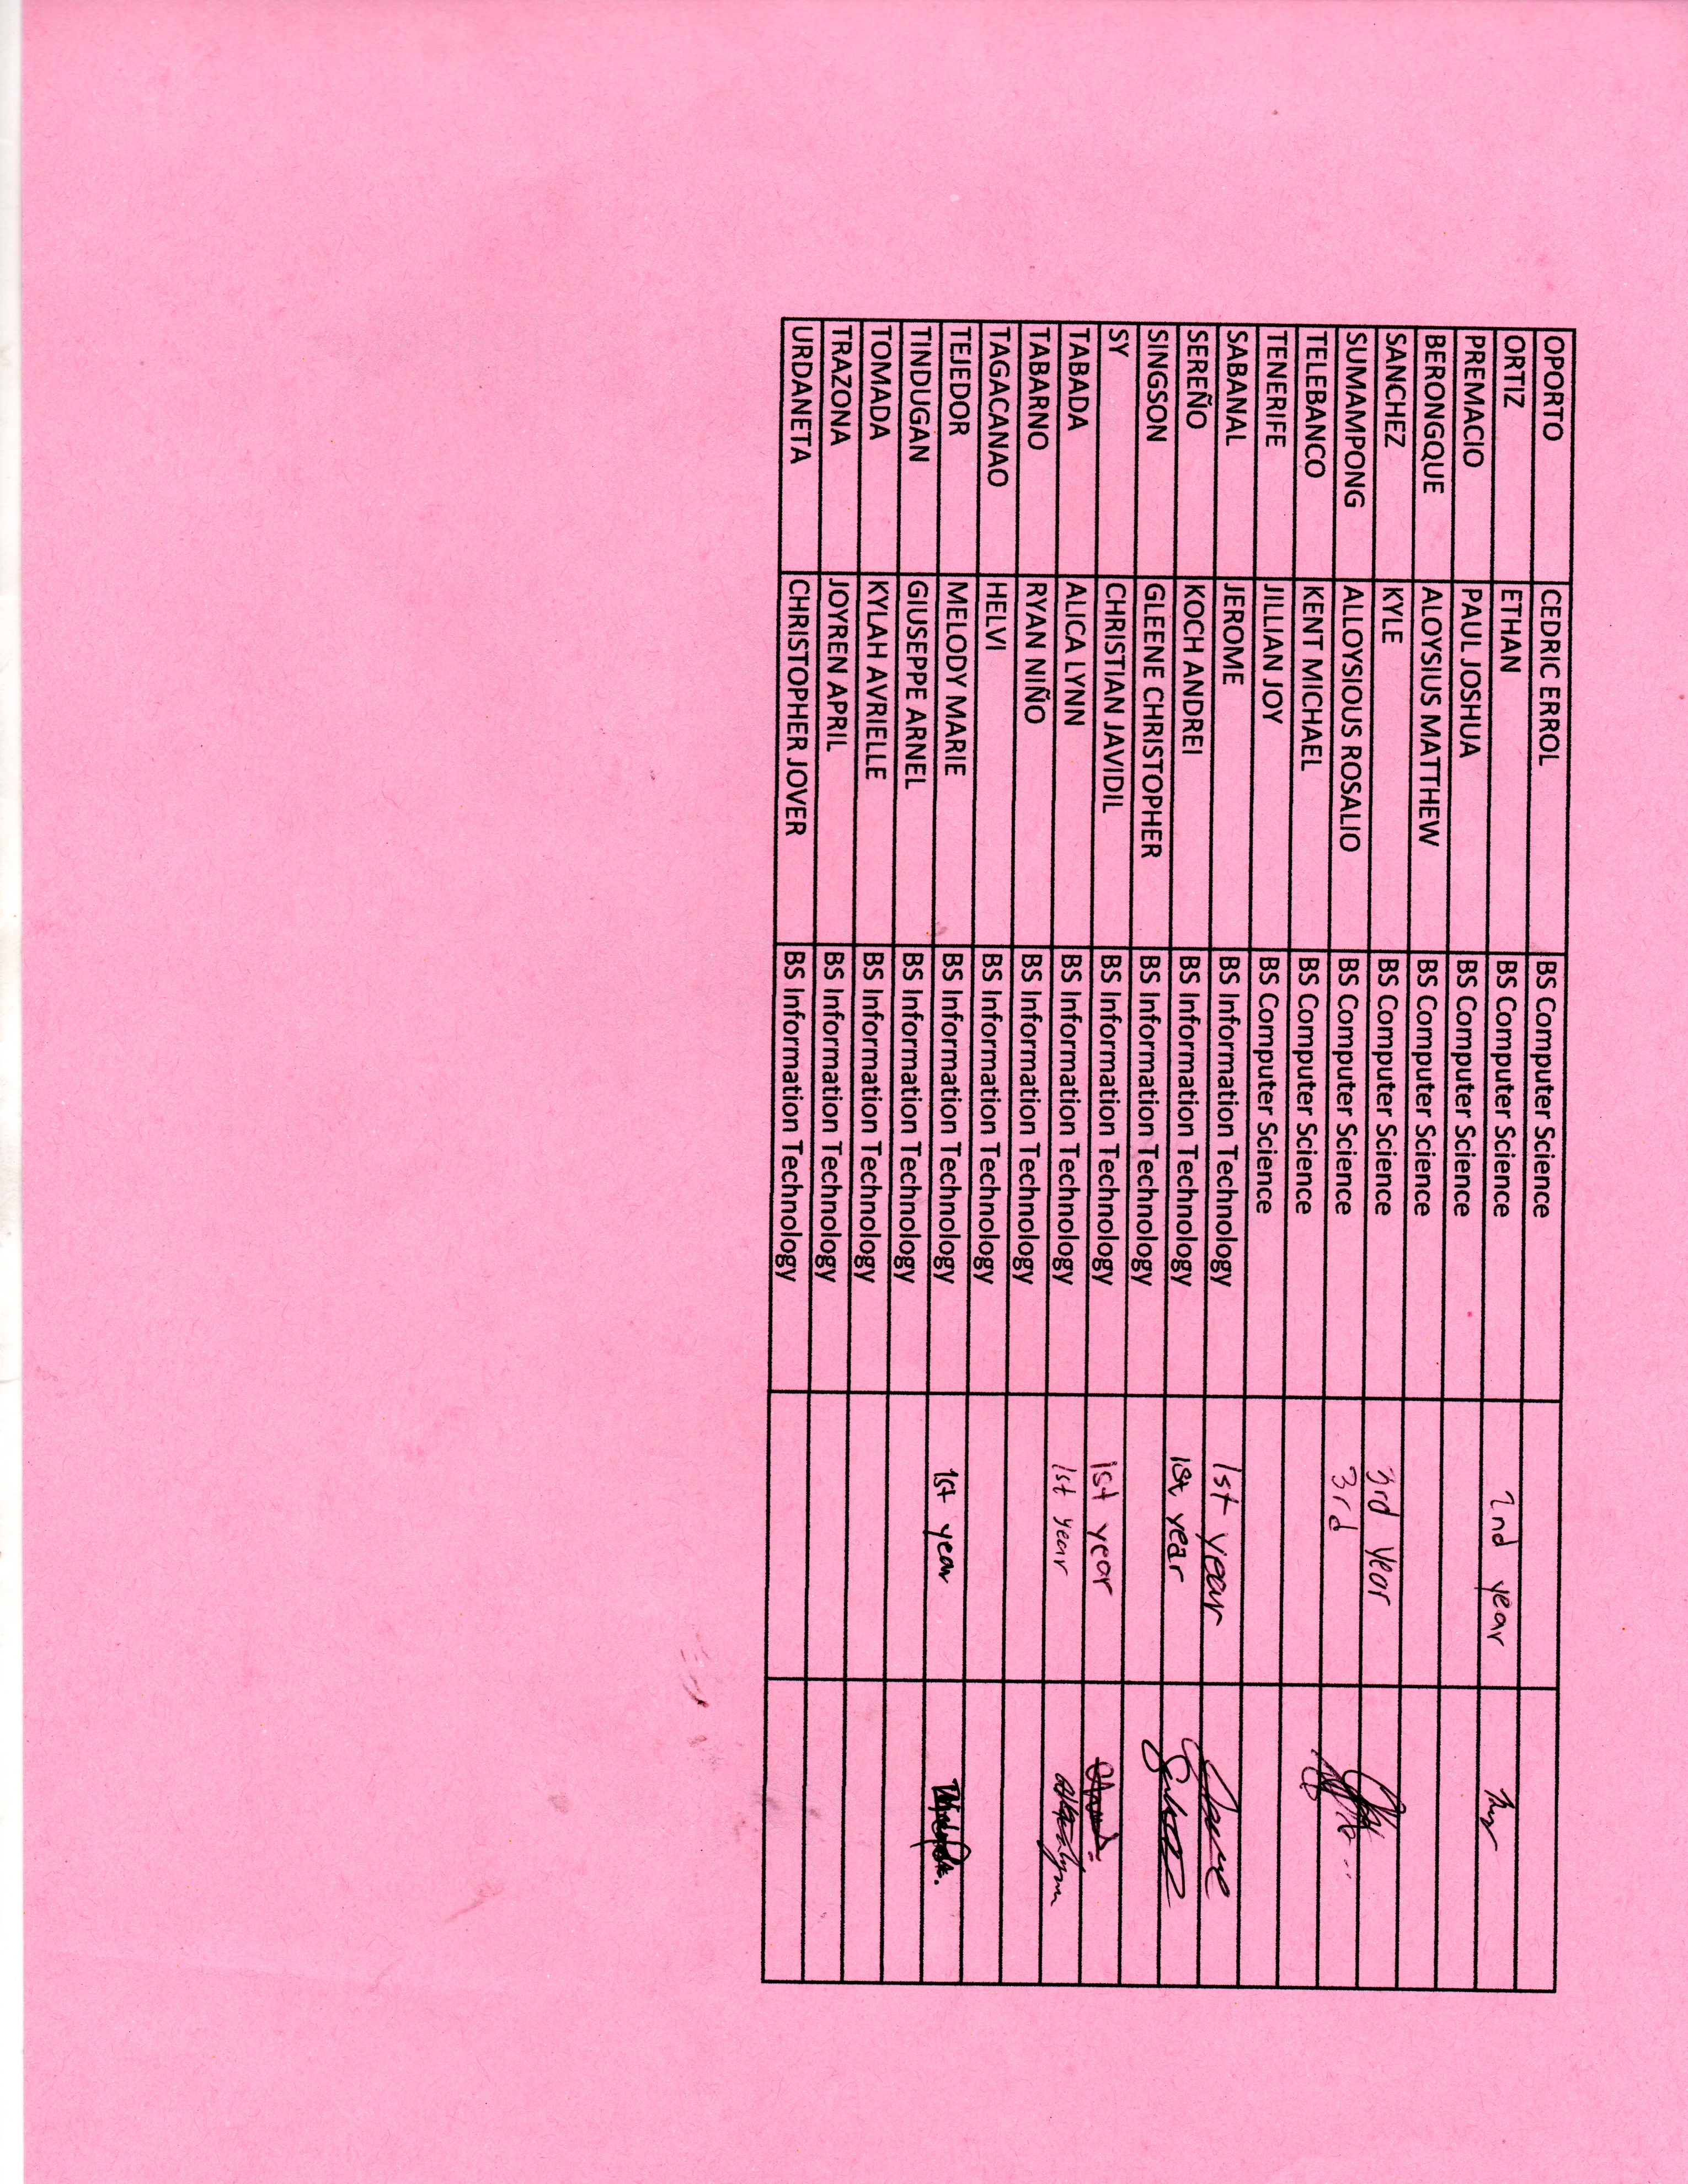 OPORTO CEDRIC ERROL BS Computer Science
ORTIZ ETHAN BS Computer Science 2nd year
PREMACIO PAUL JOSHUA BS Computer Science
BERONGQUE ALOYSIUS MATTHEW BS Computer Science
SANCHEZ KYLE BS Computer Science 3rd year
SUMAMPONG ALLOYSIOUS ROSALIO BS Computer Science 3rd
TELEBANCO KENT MICHAEL BS Computer Science
TENERIFE JILLIAN JOY BS Computer Science
SABANAL JEROME BS Information Technology 1st year
SEREÑO KOCH ANDREI BS Information Technology 1st year
SINGSON GLEENE CHRISTOPHER BS Information Technology
SY CHRISTIAN JAVIDIL BS Information Technology 1st year
TABADA ALICA LYNN BS Information Technology 1st year
TABARNO RYAN NIÑO BS Information Technology
TAGACANAO HELVI BS Information Technology
TEJEDOR MELODY MARIE BS Information Technology 1st year
TINDUGAN GIUSEPPE ARNEL BS Information Technology
TOMADA KYLAH AVRIELLE BS Information Technology
TRAZONA JOYREN APRIL BS Information Technology
URDANETA CHRISTOPHER JOVER BS Information Technology